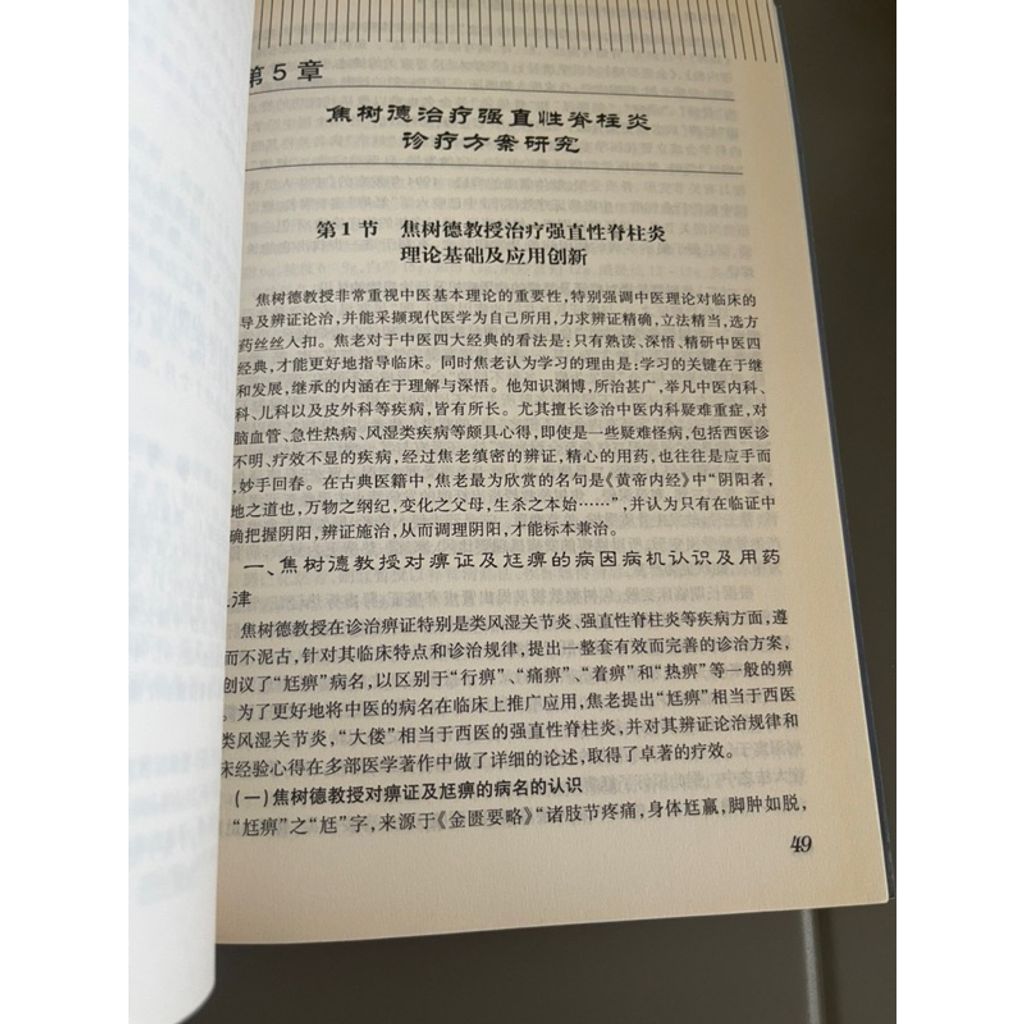 第5章
焦树德治疗强直性脊柱炎
诊疗方案研究
第1节 焦树德教授治疗强直性脊柱炎
理论基础及应用创新
焦树德教授非常重视中医基本理论的重要性,特别强调中医理论对临床的
导及辨证论治,并能采撷现代医学为自己所用,力求辨证精确,立法精当,选方
药丝丝入扣。焦老对于中医四大经典的看法是:只有熟读、深悟、精研中医四
经典,才能更好地指导临床。同时焦老认为学习的理由是:学习的关键在于继
和发展,继承的内涵在于理解与深悟。他知识渊博,所治甚广,举凡中医内科、
科、儿科以及皮外科等疾病,皆有所长。尤其擅长诊治中医内科疑难重症,对
脑血管、急性热病、风湿类疾病等颇具心得,即使是一些疑难怪病,包括西医诊
不明、疗效不显的疾病,经过焦老缜密的辨证,精心的用药,也往往是应手而
,妙手回春。在古典医籍中,焦老最为欣赏的名句是《黄帝内经》中“阴阳者,
地之道也,万物之纲纪,变化之父母,生杀之本始……”,并认为只有在临证中
确把握阴阳,辨证施治,从而调理阴阳,才能标本兼治。
一、焦树德教授对痹证及尪痹的病因病机认识及用药
律
焦树德教授在诊治痹证特别是类风湿关节炎、强直性脊柱炎等疾病方面,遵
而不泥古,针对其临床特点和诊治规律,提出一整套有效而完善的诊治方案,
创议了“尪痹”病名,以区别于“行痹”、“痛痹”、“着痹”和“热痹”等一般的痹
。为了更好地将中医的病名在临床上推广应用,焦老提出“尪痹”相当于西医
类风湿关节炎,“大偻”相当于西医的强直性脊柱炎,并对其辨证论治规律和
床经验心得在多部医学著作中做了详细的论述,取得了卓著的疗效。
(一)焦树德教授对痹证及尪痹的病名的认识
“尪痹”之“尪”字,来源于《金匮要略》“诸肢节疼痛,身体尪羸,脚肿如脱,
49